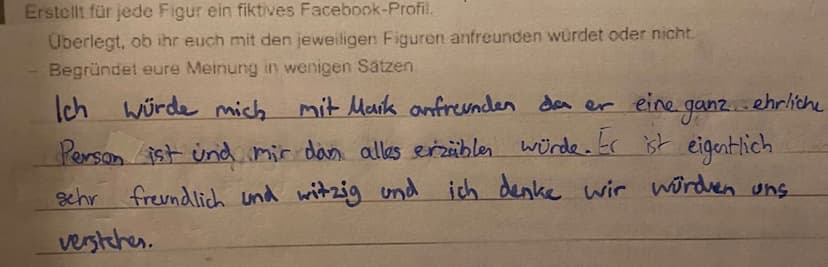 Erstellt für jede Figur ein fiktives Facebook-Profil.
Überlegt, ob ihr euch mit den jeweiligen Figuren anfreunden würdet oder nicht.
– Begründet eure Meinung in wenigen Sätzen
Ich würde mich mit Maik anfreunden da er eine ganz ehrliche
Person ist und mir dan alles erzählen würde. Er ist eigentlich
sehr freundlich und witzig und ich denke wir würden uns
verstehen.